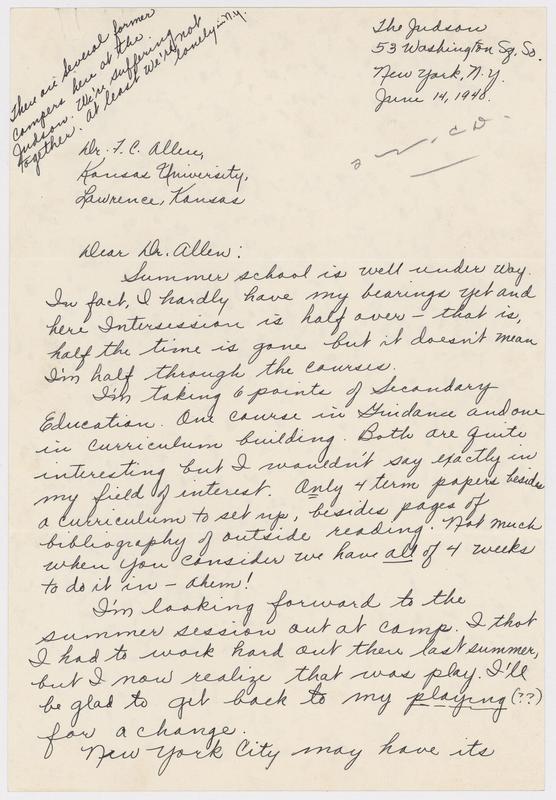 There are several former
campers here at the
Judson. We're suffering
together. At least we're not
lonely - N.Y.
The Judson
53 Washington Sq. So.
New York, N.Y.
June 14, 1940.
Dr. F. C. Allen,
Kansas University,
Lawrence, Kansas
Dear Dr. Allen:
Summer school is well under way.
In fact, I hardly have my bearings yet and
here Intersession is half over - that is,
half the time is gone but it doesn't mean
I'm half through the courses.
I'm taking 6 points of Secondary
Education. One course in Guidance and one
in curriculum building. Both are quite
interesting but I wouldn't say exactly in
my field of interest. Only 4 term papers besides
a curriculum to set up, besides pages of
bibliography of outside reading. Not much
when you consider we have all of 4 weeks
to do it in - ahem!
I'm looking forward to the
summer session out at camp. I thot
I had to work hard out there last summer,
but I now realize that was play. I'll
be glad to get back to my playing (??)
for a change.
New York City may have its